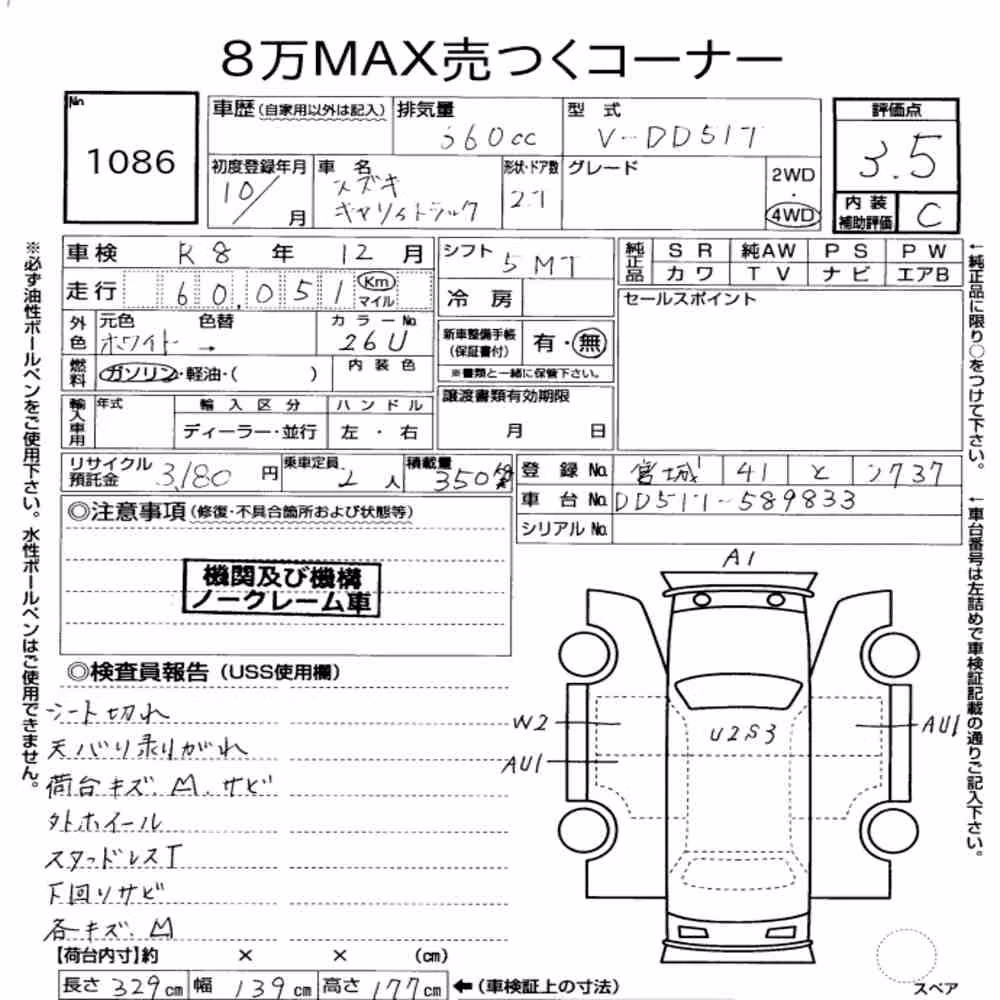 8万MAX売つくコーナー
No
1086
車歴 (自家用以外は記入)
排気量
360cc
型 式
V-DD51T
評価点
3.5
初度登録年月
10/
月
車 名
スズキ
キャリィトラック
形状・ドア数
2T
グレード
2WD
・
4WD
内 装
補助評価
C
車検 R8 年 12 月
走行 60,051 Km
マイル
シフト 5MT
冷 房
純正品
SR 純AW PS PW
カワ TV ナビ エアB
セールスポイント
外色
元色 色替
ホワイト →
カラーNo.
26U
新車整備手帳
(保証書付)
有・無
※書類と一緒に保管下さい。
燃料
ガソリン・軽油・( )
内 装 色
輸入車用
年式
輸 入 区 分
ハ ン ド ル
ディーラー・並行
左 ・ 右
譲渡書類有効期限
月 日
リサイクル
預託金
3,180 円
乗車定員
2 人
積載量
350 kg
登 録 No. 宮城 41 と
車 台 No. DD51T-589833
シリアル No.
◎注意事項 (修復・不具合箇所および状態等)
機関及び機構
ノークレーム車
◎検査員報告 (USS使用欄)
シート切れ
天バリ剥がれ
荷台キズ.凹.サビ
外ホイール
スタッドレスT
下回りサビ
各キズ.凹
A1
W2
U2S3
AU1
AU1
【荷台内寸】約 × × (cm)
長さ 329 cm 幅 139 cm 高さ 177 cm ←(車検証上の寸法)
スペア
※必ず油性ボールペンをご使用下さい。水性ボールペンはご使用できません。
←純正品に限り○をつけて下さい。
←車台番号は左詰めで車検証記載の通りご記入下さい。